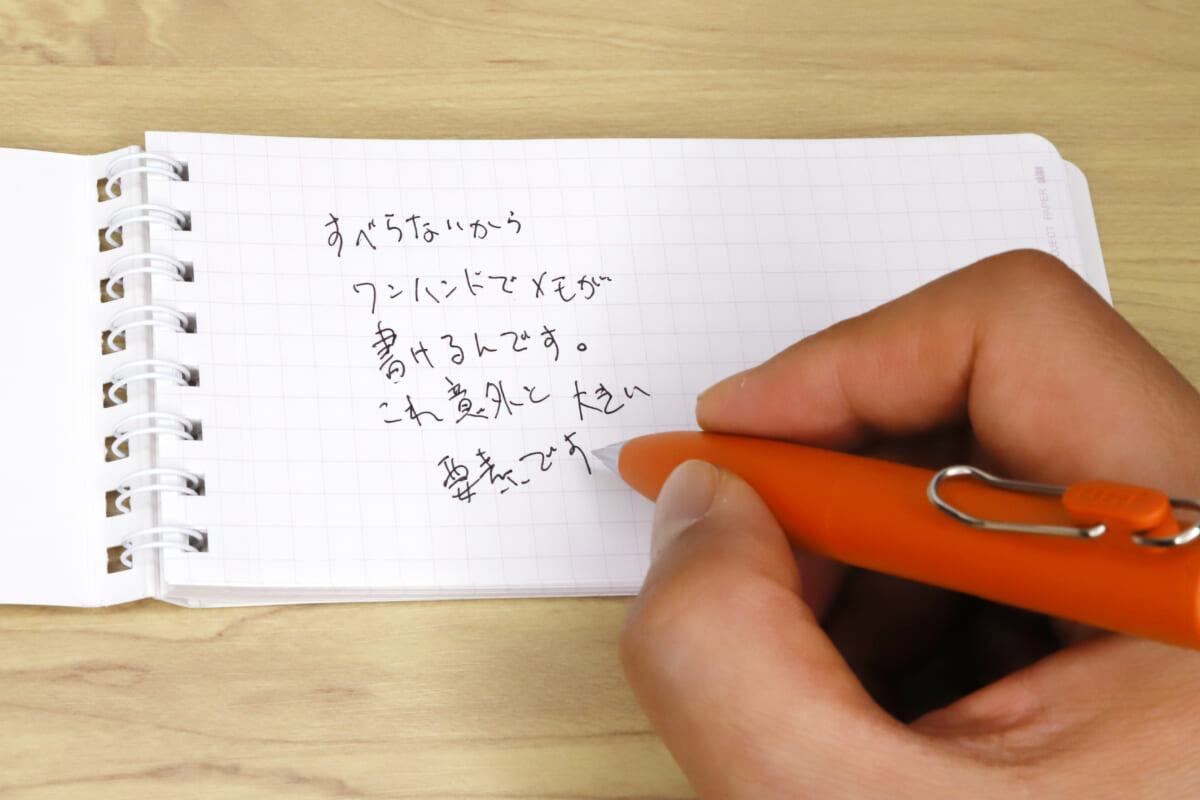 すべらないから
ワンハンドでメモが
書けるんです。
これ意外と 大きい
要素です
PROJECT PAPER
UNI